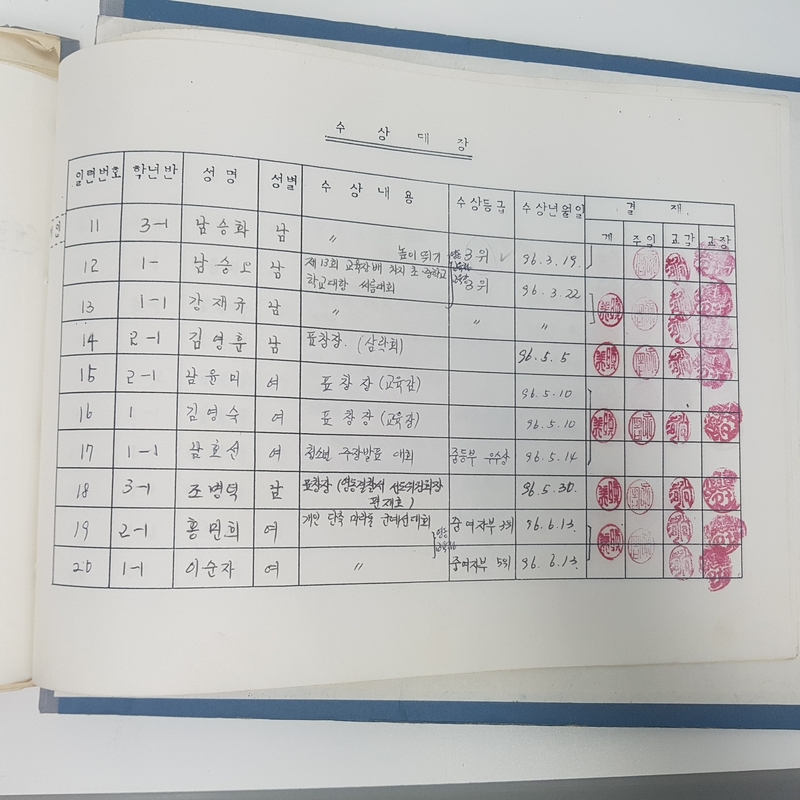 수 상 대 장
일련번호 학년반 성명 성별 수상내용 수상등급 수상년월일 결재
계 주임 교감 교장
11 3-1 남승화 남 〃 높이뛰기 3위 96.3.19.
12 1- 남승오 남 제13회 교육장배 차지 초·중학교
학교대항 씨름대회 3위 96.3.22
13 1-1 강재규 남 〃 〃
14 2-1 김영훈 남 표창장. (삼락회) 96.5.5
15 2-1 남윤미 여 표창장 (교육감) 96.5.10
16 1 김영숙 여 표창장 (교육장) 96.5.10
17 1-1 남호선 여 청소년 주장발표 대회 중등부 우수상 96.5.14
18 3-1 조명덕 남 표창장 (영동경찰서 선도위원회장 96.5.30.
19 2-1 홍민희 여 개인 단축 마라톤 군예선대회 중여자부 3위 96.6.13.
20 1-1 이순자 여 〃 중여자부 5위 96.6.13.